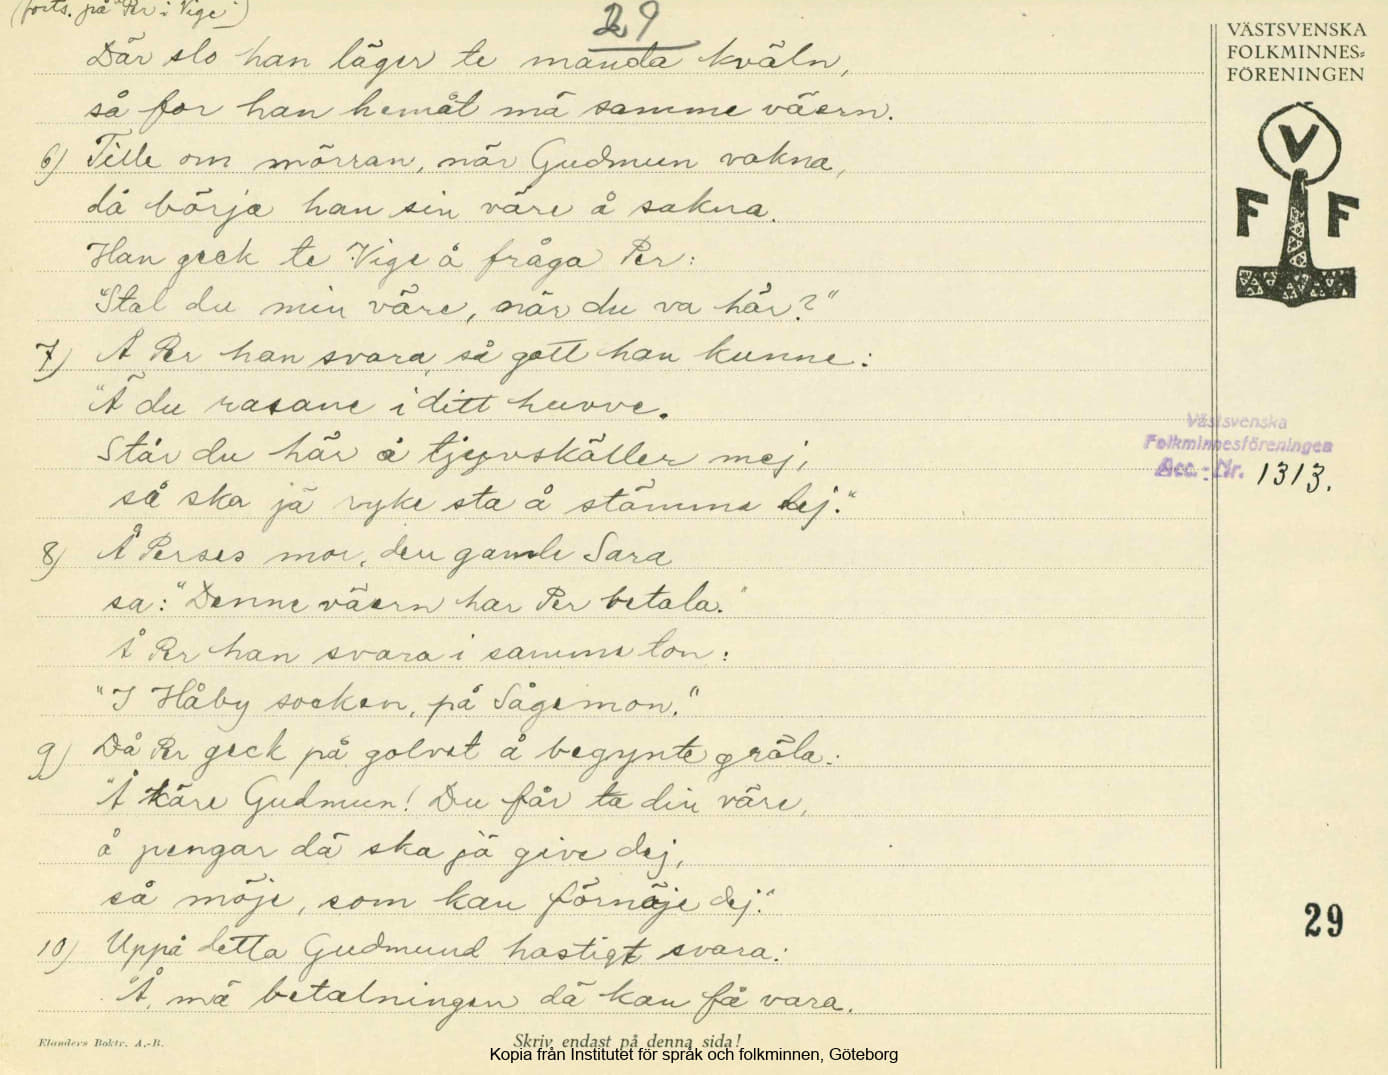 (forts. på "Per i Vige")
29
VÄSTSVENSKA
FOLKMINNES=
FÖRENINGEN
Där slo han läger te månda kväln,
så for han hemåt mä samme väern.
V
F F
6) Tille om mörran, när Gudmun vakna,
då börja han sin väre å sakna.
Han geck te Vige å fråga Per:
"Stal du min väre, när du va här?"
7) Å Per han svara, så gott han kunne:
"Ä du rasane i ditt huvve.
Står du här å tjyvskäller mej,
så ska jä ryke sta å stämma dej."
Västsvenska
Folkminnesföreningen
Acc.-Nr. 1313.
8) Å Perses mor, den gamle Sara
sa: "Denne väern har Per betala."
Å Per han svara i samme ton:
"I Håby socken, på Sågemon."
9) Då Per geck på golvet å begynte gräla:
"Å käre Gudmun! Du får ta din väre,
å pengar dä ska jä give dej,
så möje, som kan förnöje dej."
29
10) Uppå detta Gudmund hastigt svara:
"Å, mä betalningen dä kan få vara.
Elanders Boktr. A.-B.
Skriv endast på denna sida!
Kopia från Institutet för språk och folkminnen, Göteborg